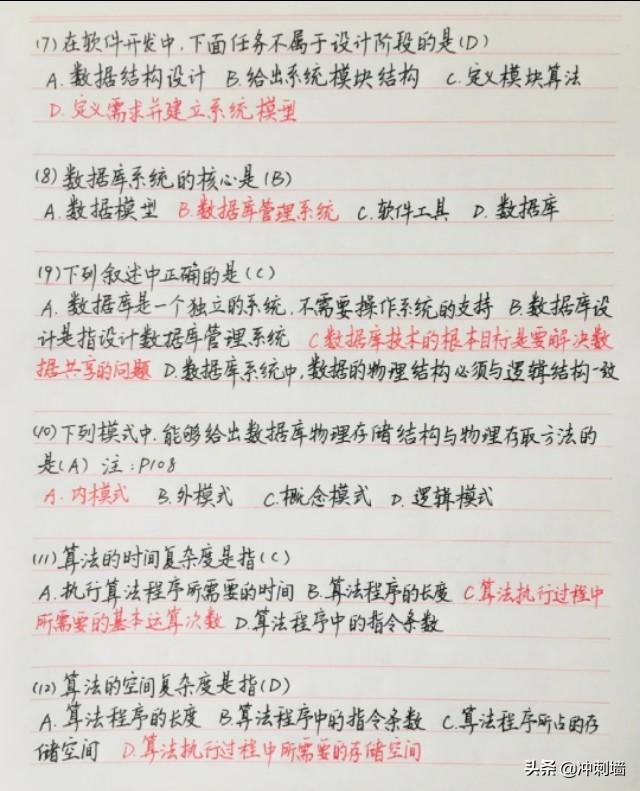 (7)在软件开发中,下面任务不属于设计阶段的是(D)
A.数据结构设计 B.给出系统模块结构 C.定义模块算法
D.定义需求并建立系统模型
(8)数据库系统的核心是(B)
A.数据模型 B.数据库管理系统 C.软件工具 D.数据库
(9)下列叙述中正确的是(C)
A.数据库是一个独立的系统,不需要操作系统的支持 B.数据库设
计是指设计数据库管理系统 C数据库技术的根本目标是要解决数
据共享的问题 D.数据库系统中,数据的物理结构必须与逻辑结构一致
(10)下列模式中,能够给出数据库物理存储结构与物理存取方法的
是(A) 注:P108
A.内模式 B.外模式 C.概念模式 D.逻辑模式
(11)算法的时间复杂度是指(C)
A.执行算法程序所需要的时间 B.算法程序的长度 C算法执行过程中
所需要的基本运算次数 D.算法程序中的指令条数
(12)算法的空间复杂度是指(D)
A.算法程序的长度 B.算法程序中的指令条数 C.算法程序所占的存
储空间 D.算法执行过程中所需要的存储空间
头条 @冲刺墙